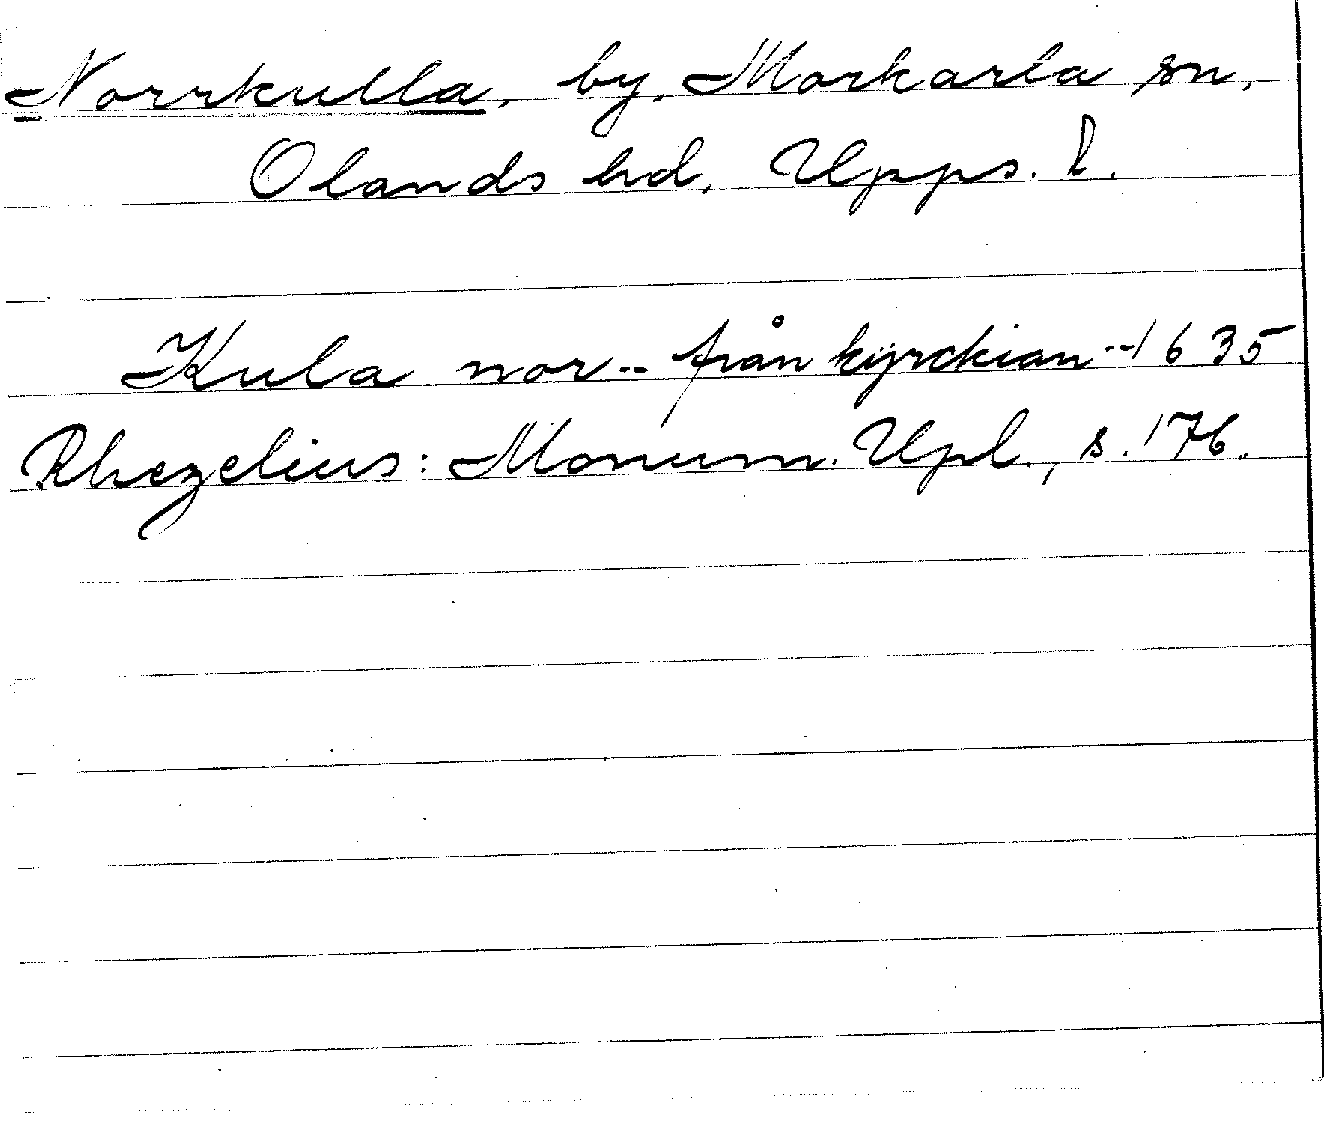 Norrkulla, by, Morkarla sn,
Olands hd, Upps. l.
Kula nor -- från kyrckian -- 1635
Rhezelius: Monum. Upl., s. 176.